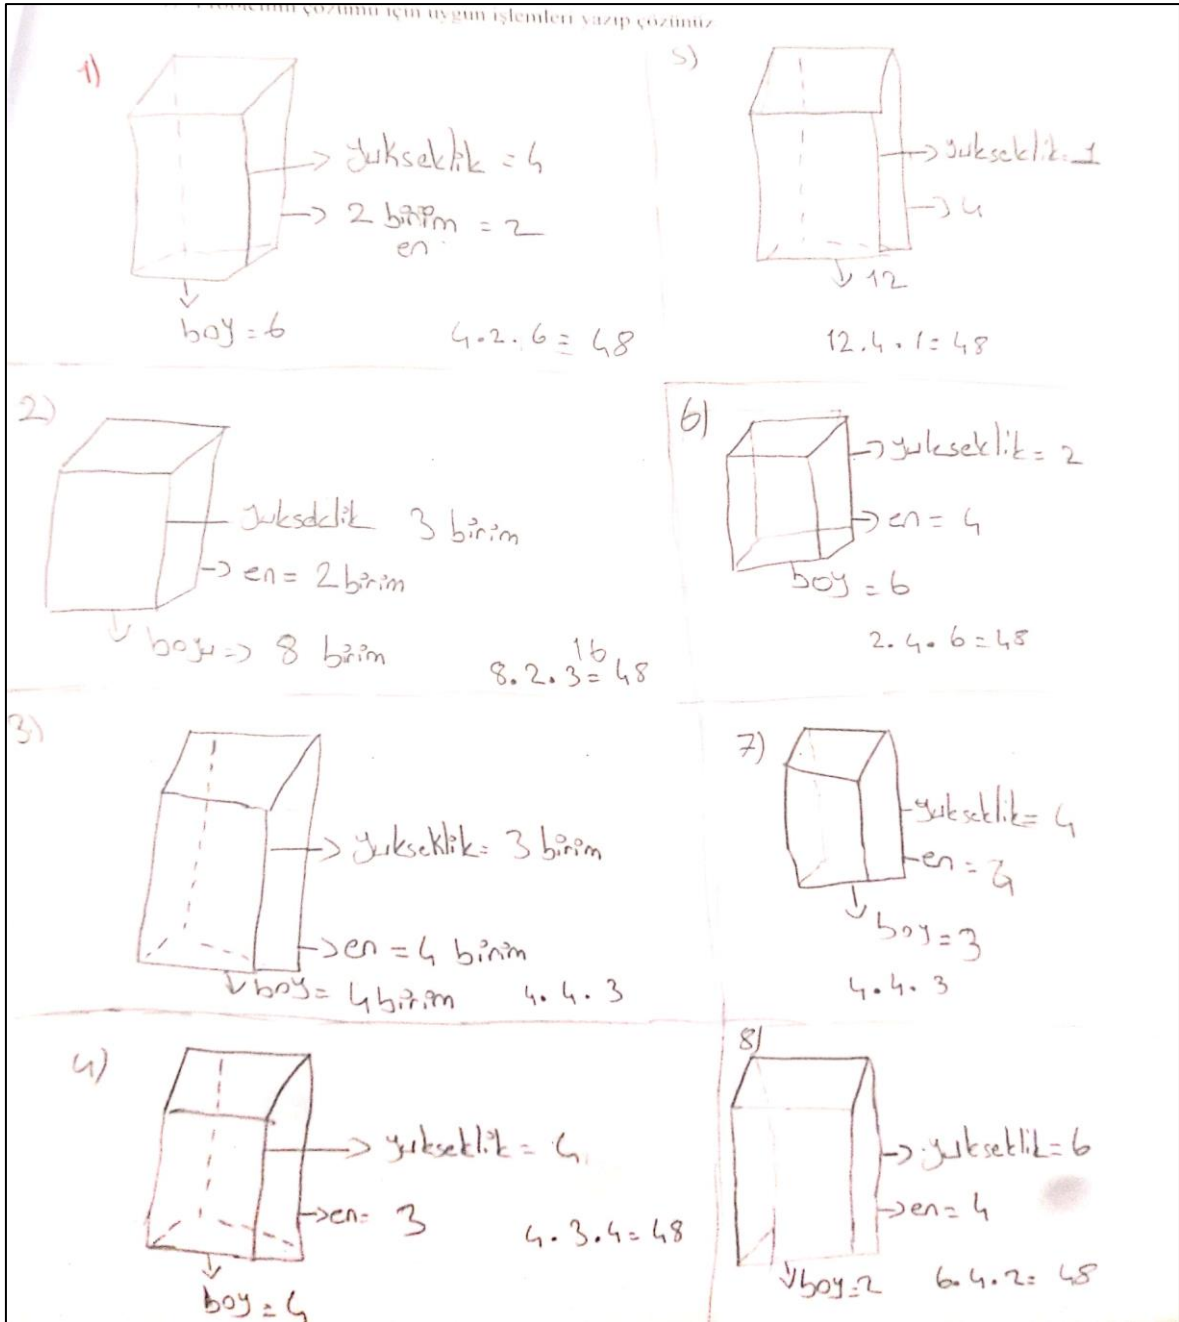 Problemin çözümü için uygun işlemleri yazıp çözünüz
1)
yukseklik = 4
2 birim = 2
en
boy = 6
4.2.6 = 48
2)
yukseklik 3 birim
en = 2 birim
boyu => 8 birim
16
8.2.3 = 48
3)
yukseklik = 3 birim
en = 4 birim
boy = 4 birim
4.4.3
4)
yukseklik = 4
en = 3
boy = 4
4.3.4 = 48
5)
yukseklik = 1
4
12
12.4.1 = 48
6)
yukseklik = 2
en = 4
boy = 6
2.4.6 = 48
7)
yukseklik = 4
en = 4
boy = 3
4.4.3
8)
yukseklik = 6
en = 4
boy = 2
6.4.2 = 48